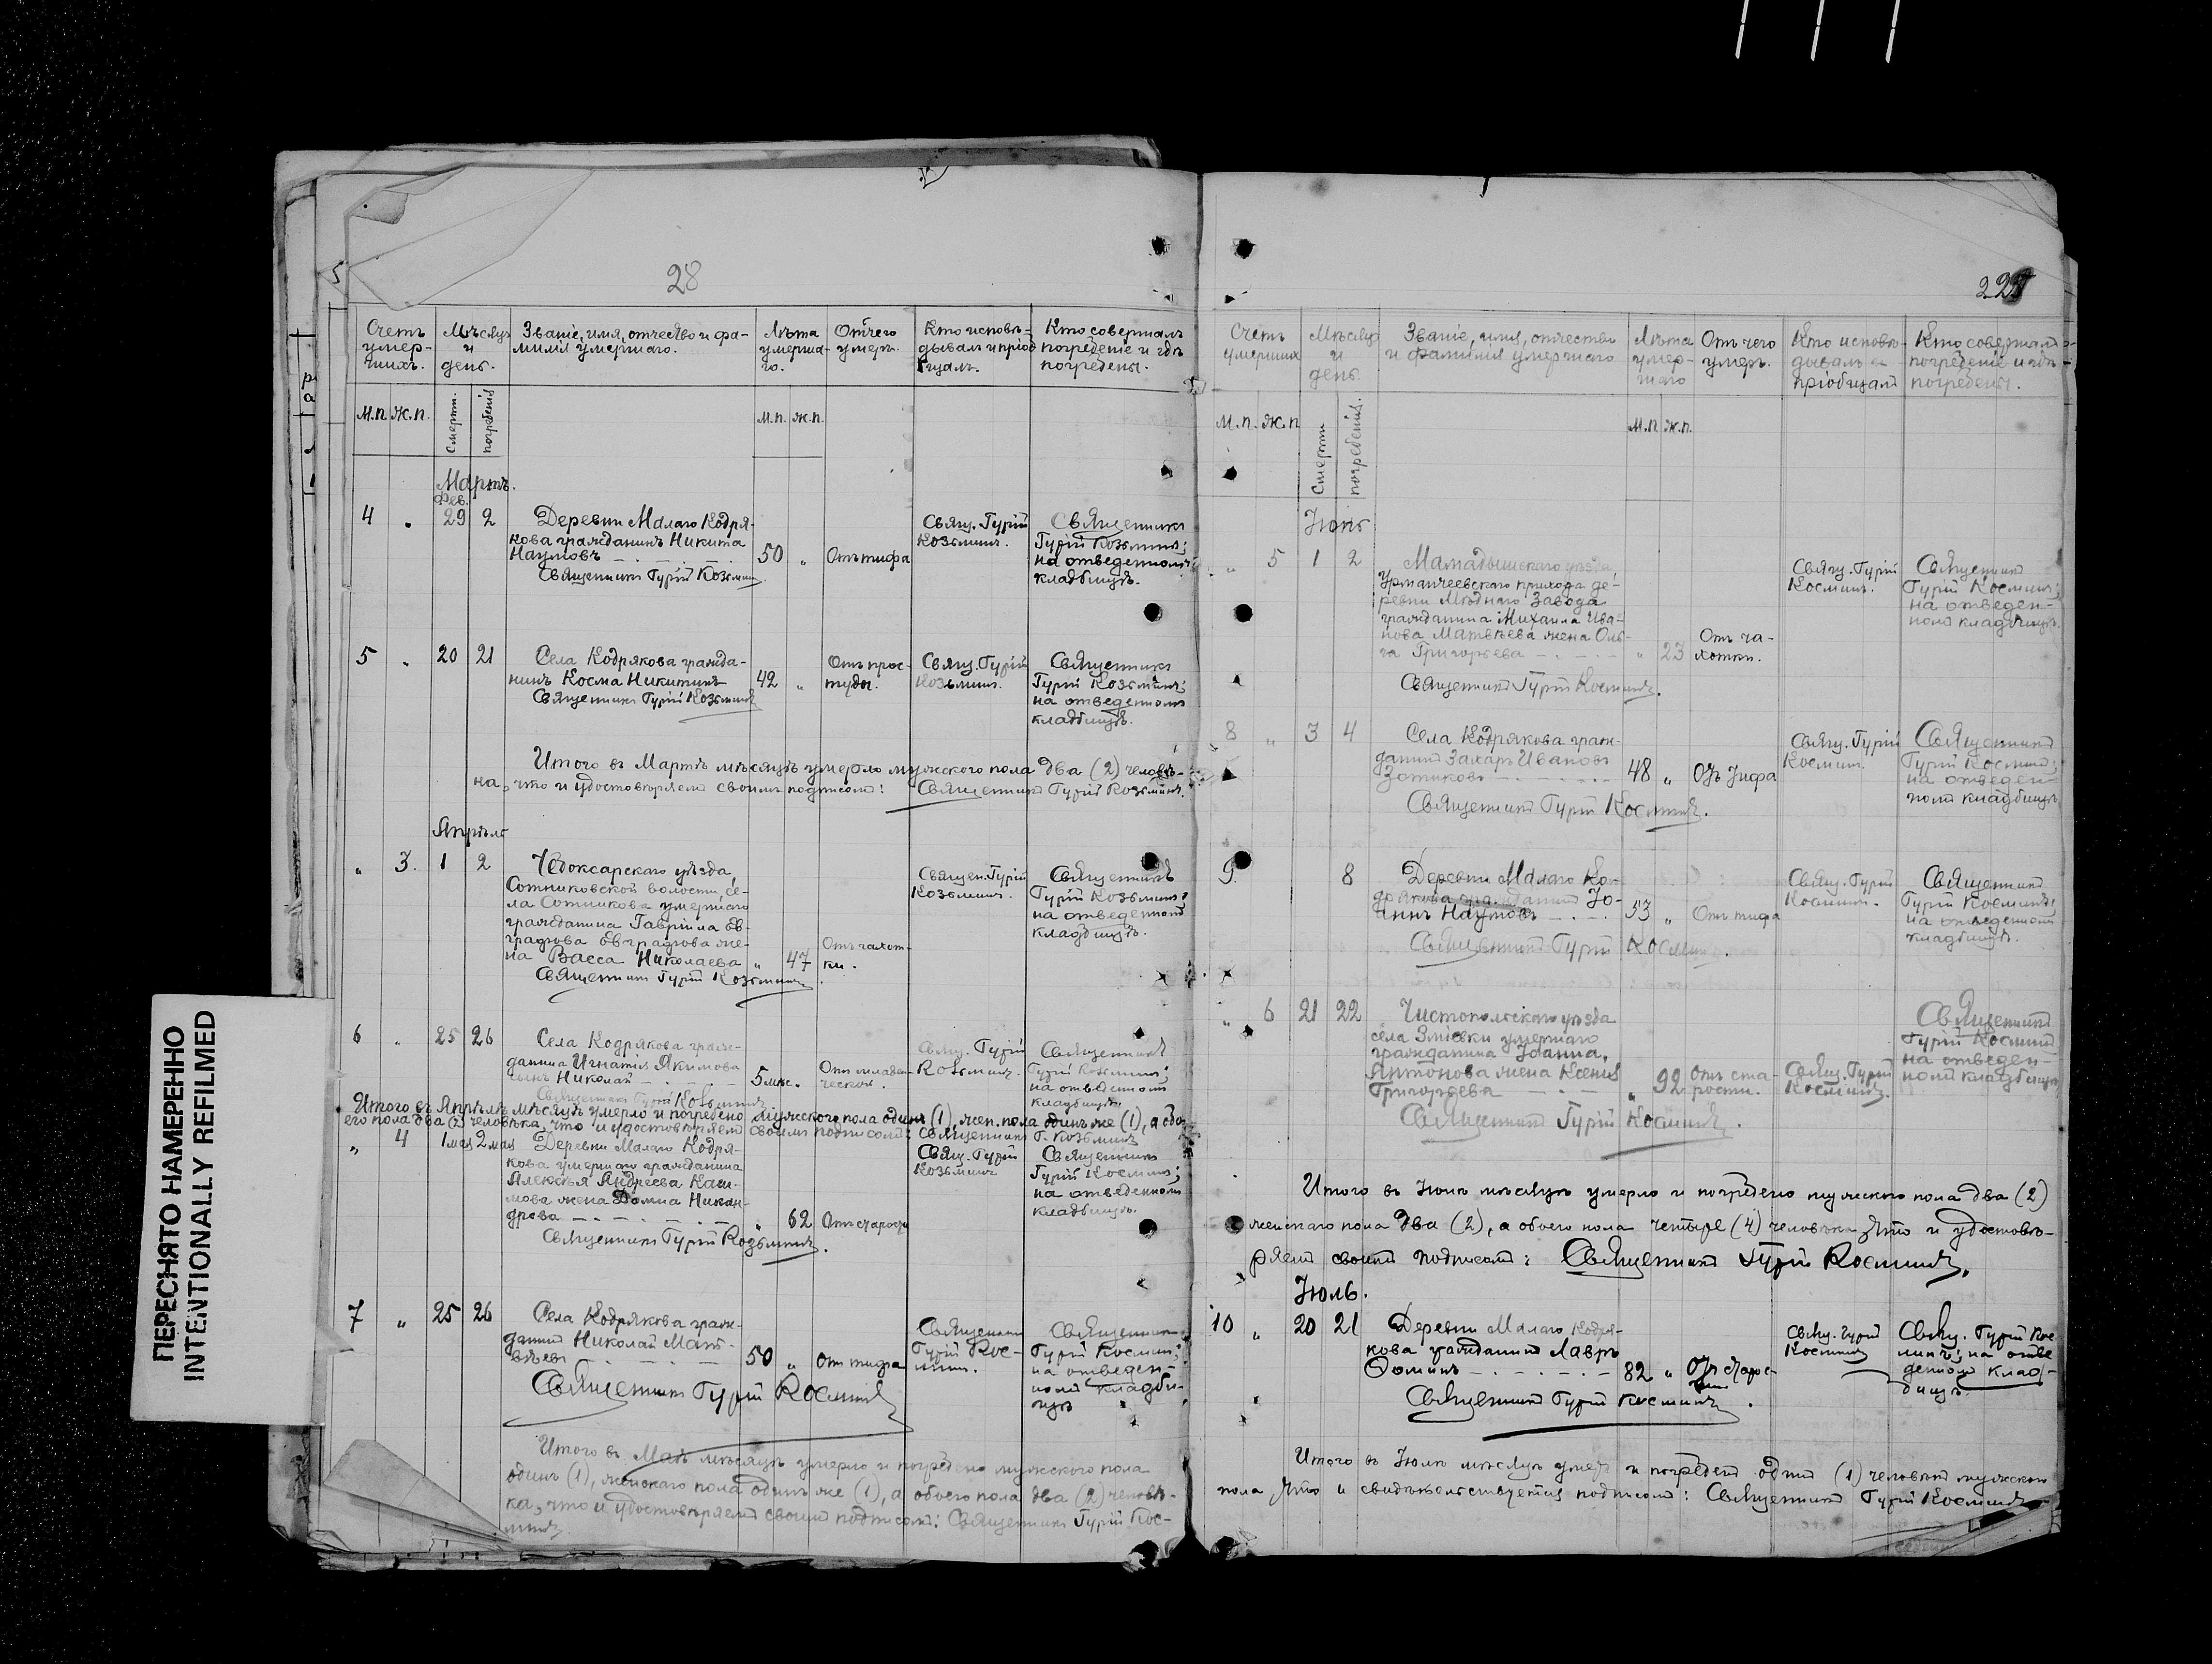 28
Счетъ умер-шихъ.
Мѣсяцъ и день.
Званіе, имя, отчество и фа-
милія умершаго.
Лѣта умерша-го.
Отчего умеръ.
Кто исповѣ-дывалъ и пріоб
щалъ.
Кто совершалъ погребеніе и гдѣ погребены.
М.п. Ж.п.
Смерти.
погребенія
М.п. Ж.п.
Мартъ.
Фев.
4 „ 29 2
Деревни Малаго Кодря-
кова гражданинъ Никита
Наумовъ
50 „ Отъ тифа
Священникъ Гурій Козьминъ
Свящ. Гурій
Козьминъ.
Священникъ
Гурій Козьминъ;
на отведенномъ
кладбищѣ.
5 „ 20 21
Села Кодрякова гражда-
нинъ Косма Никитинъ
42 „ Отъ прос-
туды.
Священникъ Гурій Козьминъ
Свящ. Гурій
Козьминъ.
Священникъ
Гурій Козьминъ;
на отведенномъ
кладбищѣ.
Итого въ Мартѣ мѣсяцѣ умерло мужского пола два (2) человѣ-
ка, что и удостовѣряемъ своимъ подписомъ: Священникъ Гурій Козьминъ.
Апрѣль
„ 3. 1 2
Чебоксарскаго уѣзда,
Сотниковской волости, се-
ла Сотникова умершаго
гражданина Гавріила Ев-
графова Евграфова же-
на Васса Николаева
„ 47 Отъ чахот-
ки.
Священникъ Гурій Козьминъ
Священ. Гурій
Козьминъ.
Священникъ
Гурій Козьминъ;
на отведенномъ
кладбищѣ.
6 „ 25 26
Села Кодрякова граж-
данина Игнатія Якимова
сынъ Николай
5 мѣс. Отъ младен-
ческой.
Священникъ Гурій Козьминъ
Свящ. Гурій
Козьминъ.
Священникъ
Гурій Козьминъ;
на отведенномъ
кладбищѣ.
Итого въ Апрѣлѣ мѣсяцѣ умерло и погребено мужского пола одинъ (1), жен. пола одинъ же (1), а обо-
его пола два (2) человѣка, что и удостовѣряемъ своимъ подписомъ: Священникъ Г. Козьминъ
„ 4 1 мая 2 мая
Деревни Малаго Кодря-
кова умершаго гражданина
Алексѣя Андреева Каш-
мова жена Домна Никан-
дрова
„ 62 Отъ старости
Священникъ Гурій Козьминъ.
Свящ. Гурій
Козьминъ
Священникъ
Гурій Космин;
на отведенномъ
кладбищѣ.
7 „ 25 26
Села Кодрякова граж-
данинъ Николай Мат-
вѣевъ
50 „ Отъ тифа
Священникъ Гурій Косминъ
Священникъ
Гурій Кос-
минъ.
Священникъ
Гурій Косминъ;
на отведен-
номъ кладби-
щѣ
Итого въ Маѣ мѣсяцѣ умерло и погребено мужского пола
одинъ (1), женскаго пола одинъ же (1), а обоего пола два (2) человѣ-
ка, что и удостовѣряемъ своимъ подписомъ: Священникъ Гурій Кос-
минъ
Счетъ
умершихъ
Мѣсяцъ
и
день.
Званіе, имя, отчество
и фамилія умершаго
Лѣта
умер-
шаго
Отъ чего
умеръ.
Кто исповѣ-
дывалъ и
пріобщалъ
Кто совершалъ
погребеніе и гдѣ
погребены.
М.п. Ж.п.
Смерти
погребенія.
М.п. Ж.п.
Іюнь
„ 5 1 2
Мамадышскаго уѣзда,
Урманчеевскаго прихода де-
ревни Мѣднаго Завода
гражданина Михаила Ива-
нова Матвѣева жена Оль-
га Григорьева
„ 23 Отъ ча-
хотки.
Священникъ Гурій Косминъ.
Свящ. Гурій
Косминъ.
Священникъ
Гурій Косминъ;
на отведен-
номъ кладбищѣ.
8 „ 3 4
Села Кодрякова граж-
данинъ Захаръ Ивановъ
Зотиковъ
48 „ Отъ тифа
Священникъ Гурій Косминъ.
Свящ. Гурій
Косминъ.
Священникъ
Гурій Косминъ;
на отведен-
номъ кладбищѣ
9. 8
Деревни Малаго Ко-
дрякова гражданинъ Іо-
аннъ Наумовъ
53 „ Отъ тифа
Священникъ Гурій Косминъ.
Свящ. Гурій
Косминъ.
Священникъ
Гурій Косминъ;
на отведенномъ
кладбищѣ.
„ 6 21 22
Чистопольскаго уѣзда
села Зміевки умершаго
гражданина Іоанна
Антонова жена Ксенія
Григорьева
„ 92 Отъ ста-
рости.
Священникъ Гурій Косминъ.
Свящ. Гурій
Косминъ.
Священникъ
Гурій Косминъ
на отведен-
номъ кладбищѣ
Итого въ Іюнѣ мѣсяцѣ умерло и погребено мужского пола два (2)
женскаго пола два (2), а обоего пола четыре (4) человѣка, что и удостовѣ-
ряемъ своимъ подписомъ: Священникъ Гурій Косминъ.
Іюль.
10 „ 20 21
Деревни Малаго Кодря-
кова гражданинъ Лавръ
Ѳоминъ
82 „ Отъ старос-
ти
Священникъ Гурій Косминъ.
Свящ. Гурій
Косминъ
Свящ. Гурій Кос
минъ; на отве
денномъ клад-
бищѣ.
Итого въ Іюлѣ мѣсяцѣ умеръ и погребенъ одинъ (1) человѣкъ мужского
пола, что и свидѣтельствуется подписомъ: Священникъ Гурій Косминъ
ПЕРЕСНЯТО НАМЕРЕННО
INTENTIONALLY REFILMED